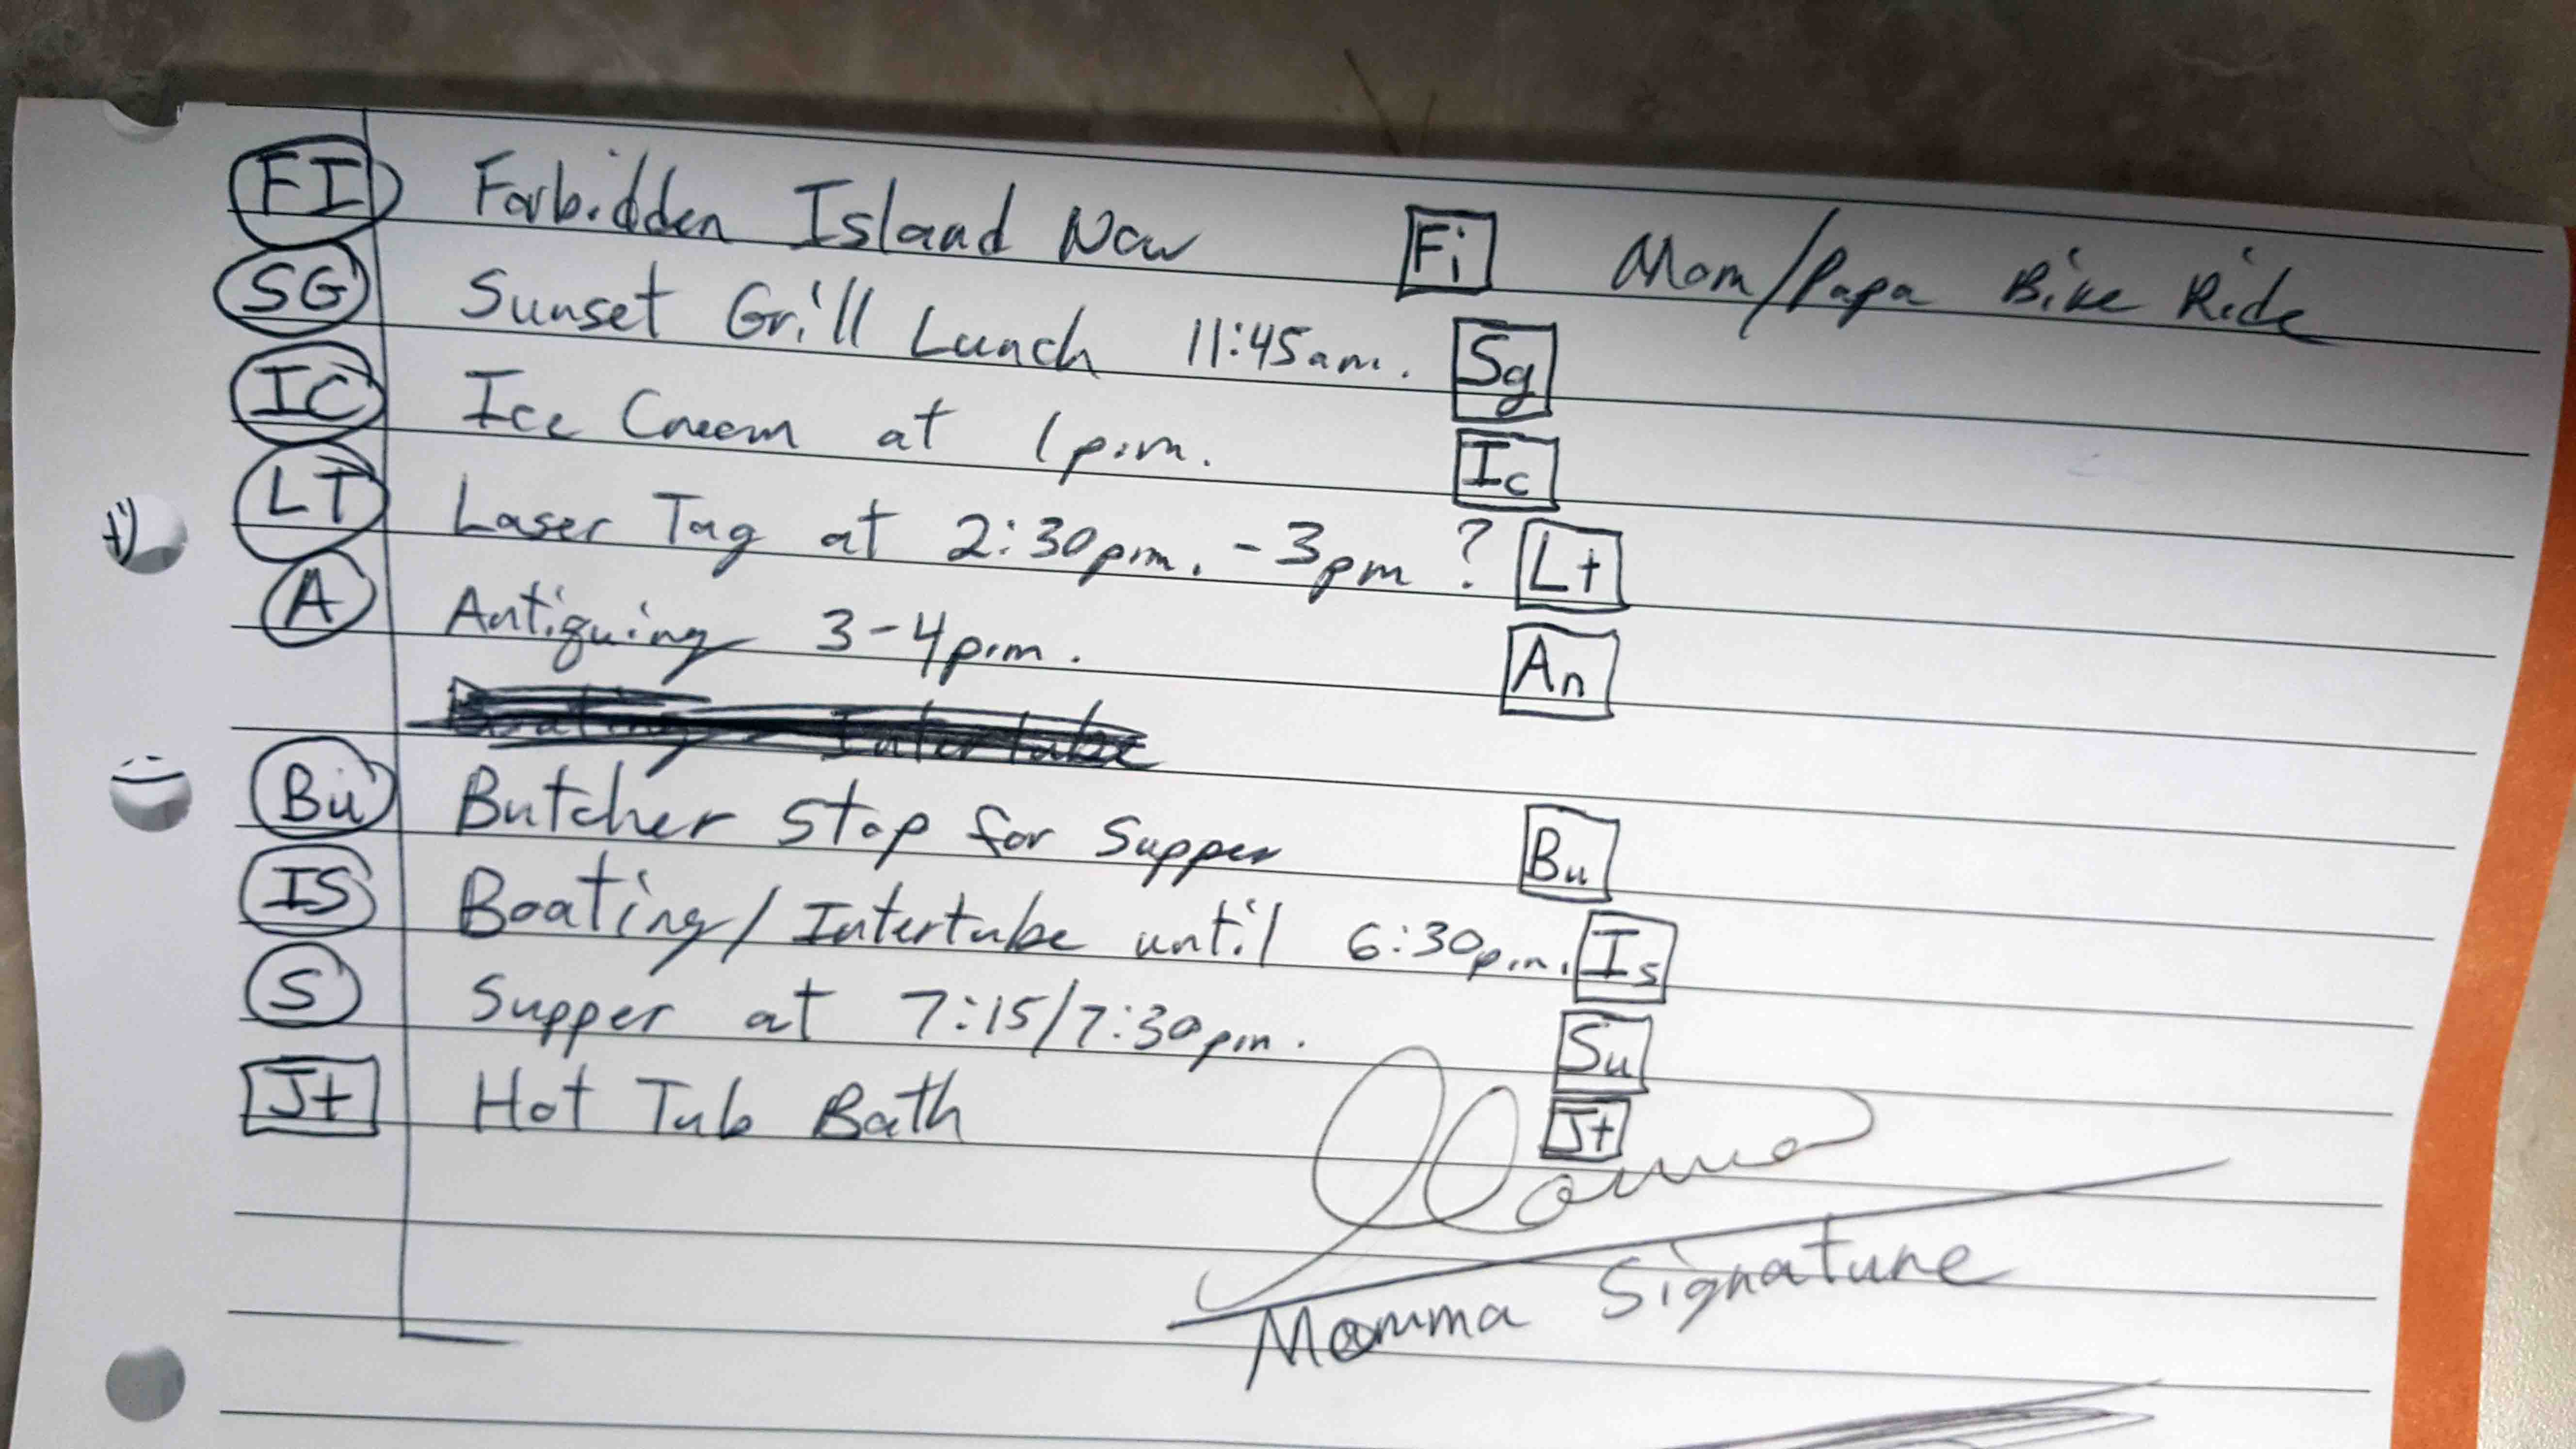 FI Forbidden Island Now Fi Mom/Papa Bike Ride
SG Sunset Grill Lunch 11:45am. Sg
IC Ice Cream at 1p.m. Ic
LT Laser Tag at 2:30p.m. - 3pm ? Lt
A Antiquing 3-4p.m. An
Boating Intertube
Bu Butcher Stop for Supper Bu
IS Boating/Intertube until 6:30p.m. Is
S Supper at 7:15/7:30pm. Su
Jt Hot Tub Bath Jt
Momma Signature